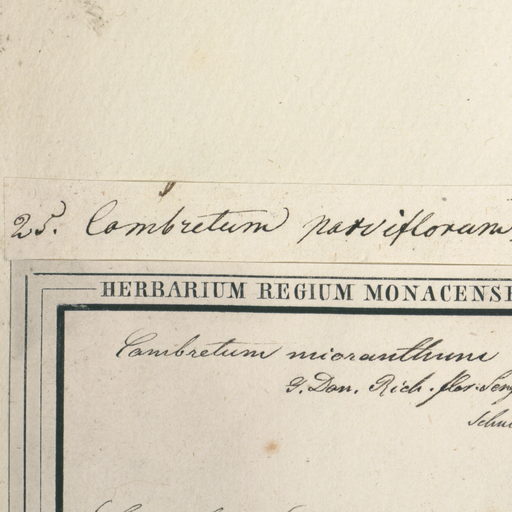 25. Combretum parviflorum
HERBARIUM REGIUM MONACENSE
Combretum micranthum
G. Don. Rich. flor. Seng
Schu